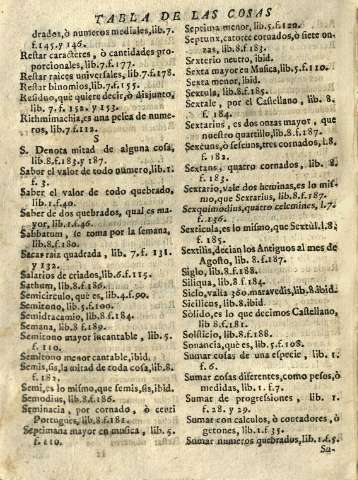 TABLA DE LAS COSAS
drados, ò numeros mediales, lib.7.
f.145. y 146.
Restar caracteres, ò cantidades pro-
porcionales, lib.7. f.177.
Restar raices universales, lib.7. f.178.
Restar binomios, lib.7. f.155.
Residuo, què quiere decir, ò disjunto,
lib. 7. f. 152. y 153.
Rithmimachia, es una pelea de nume-
ros, lib.7. f.112.
S
S. Denota mitad de alguna cosa,
lib.8. f.183. y 187.
Sabor el valor de todo numero, lib.1.
f. 3.
Saber el valor de todo quebrado,
lib.1. f.40.
Saber de dos quebrados, qual es ma-
yor, lib.1. f.46.
Sabbatum, se toma por la semana,
lib.8. f.180.
Sacar raiz quadrada, lib. 7. f. 131.
y 132.
Salarios de criados, lib.6. f.115.
Sathum, lib.8. f.186.
Semicirculo, què es, lib.4. f.90.
Semitono, lib.5. f.100.
Semidracamio, lib.8. f.184.
Semana, lib.8. f.189.
Semitono mayor incantable, lib. 5.
f. 110.
Semitono menor cantable, ibid.
Semis, sis, la mitad de toda cosa, lib.8.
f. 182.
Semi, es lo mismo, que semis, sis, ibid.
Semodius, lib.8. f.186.
Seminacia, por cornado, ò
Portugues, lib.8. f.181.
Septimana mayor en musica, lib. 5.
f. 110.
Septima menor, lib.5. f.110.
Septunx, catorce cornados, ò siete on-
zas, lib.8. f.183.
Sexterio neutro, ibid.
Sexta mayor en Musica, lib.5. f.110.
Sexta menor, ibid.
Sextula, lib.8. f.185.
Sextale, por el Castellano, lib. 8.
f. 184.
Sextarius, es dos onzas mayor, que
nuestro quartillo, lib.8. f.187.
Sexcuns, ò sescuns, tres cornados, l.8.
f. 182.
Sextans, quatro cornados, lib. 8.
f. 183.
Sextario, vale dos heminas, es lo mis-
mo, que Sextarius, lib.8. f.187.
Sexquimodius, quatro celemines, l.7.
f. 186.
Sexticola, es lo mismo, que Sextul. l.8.
f. 185.
Sextilis, decian los Antiguos al mes de
Agosto, lib.8. f.187.
Siglo, lib.8. f.188.
Siliqua, lib.8. f.184.
Siclo, valia 360. maravedis, lib.8. ibid.
Sicilicus, lib.8. ibid.
Sòlido, es lo que decimos Castellano,
lib.8. f.181.
Solsticio, lib.8. f.188.
Sonancia, què es, lib.5. f.108.
Sumar cosas de una especie, lib. 1.
f. 6.
Sumar cosas diferentes, como pesos, ò
medidas, lib. 1. f.7.
Sumar de progressiones, lib. 1.
f. 28. y 29.
Sumar con calculos, ò contadores, ò
getones, lib.1. f.35.
Sumar numeros quebrados, lib.1. f.5.
Su-